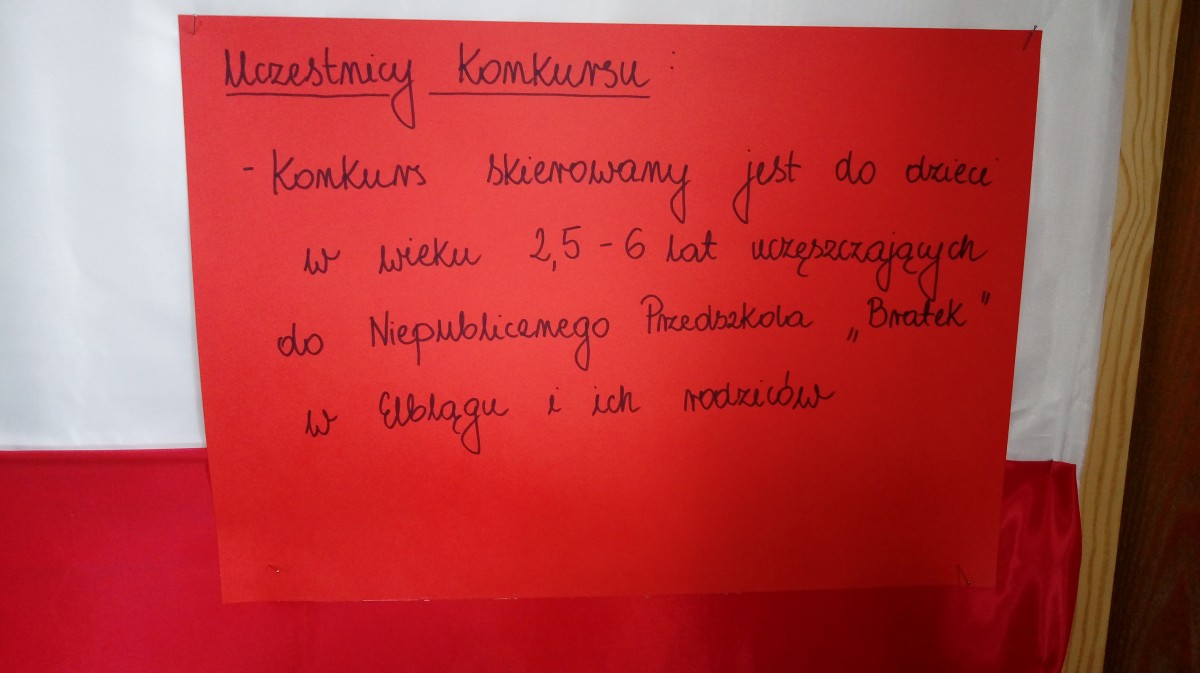 Uczestnicy Konkursu:
- Konkurs skierowany jest do dzieci
w wieku 2,5 - 6 lat uczęszczających
do Niepublicznego Przedszkola „Bratek"
w Elblągu i ich rodziców